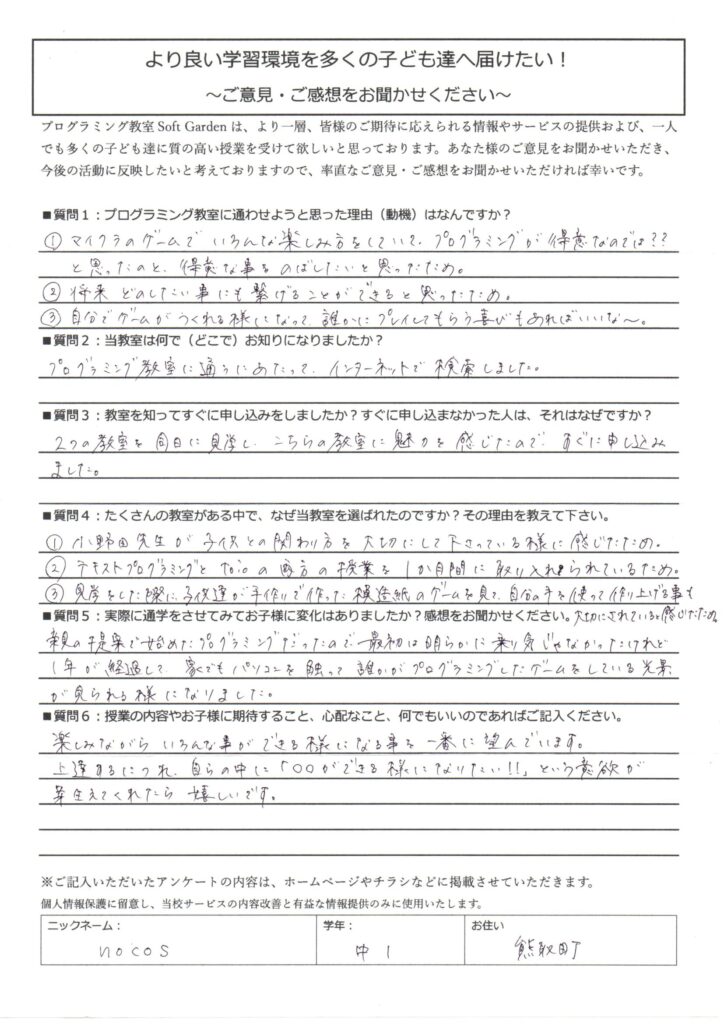 より良い学習環境を多くの子ども達へ届けたい！
～ご意見・ご感想をお聞かせください～
プログラミング教室 Soft Garden は、より一層、皆様のご期待に応えられる情報やサービスの提供および、一人
でも多くの子ども達に質の高い授業を受けて欲しいと思っております。あなた様のご意見をお聞かせいただき、
今後の活動に反映したいと考えておりますので、率直なご意見・ご感想をお聞かせいただければ幸いです。
■質問１：プログラミング教室に通わせようと思った理由（動機）はなんですか？
① マイクラのゲームで いろんな楽しみ方をしていて、プログラミングが得意なのでは??
と思ったのと、得意な事をのばしたいと思ったため。
② 将来 どのしたい事にも繋げることができると思ったため。
③ 自分でゲームがつくれる様になって、誰かにプレイしてもらう喜びもあればいいな～。
■質問２：当教室は何で（どこで）お知りになりましたか？
プログラミング教室に通うにあたって、インターネットで検索しました。
■質問３：教室を知ってすぐに申し込みをしましたか？すぐに申し込まなかった人は、それはなぜですか？
2つの教室を同日に見学し、こちらの教室に魅力を感じたので、すぐに申し込み
ました。
■質問４：たくさんの教室がある中で、なぜ当教室を選ばれたのですか？その理由を教えて下さい。
① 小野田先生が子供との関わり方を大切にして下さっている様に感じたため。
② テキストプログラミングと の両方の授業を1か月間に取り入れられているため。
③ 見学をした際に子供達が手作りで作った模造紙のゲームを見て、自分の手を使って作り上げる事も
大切にされていると感じたため
■質問５：実際に通学をさせてみてお子様に変化はありましたか？感想をお聞かせください。
親の提案で始めたプログラミングだったので、最初は明らかに乗り気じゃなかったけれど
1年が経過して、家でもパソコンを触って誰かがプログラミングしたゲームをしている光景
が見られる様になりました。
■質問６：授業の内容やお子様に期待すること、心配なこと、何でもいいのであればご記入ください。
楽しみながら いろんな事ができる様になる事を一番に望んでいます。
上達するにつれ、自らの中に「○○ができる様になりたい!!」という意欲が
芽生えてくれたら 嬉しいです。
※ご記入いただいたアンケートの内容は、ホームページやチラシなどに掲載させていただきます。
個人情報保護に留意し、当校サービスの内容改善と有益な情報提供のみに使用いたします。
ニックネーム：
nocos
学年：
中1
お住い
熊取町